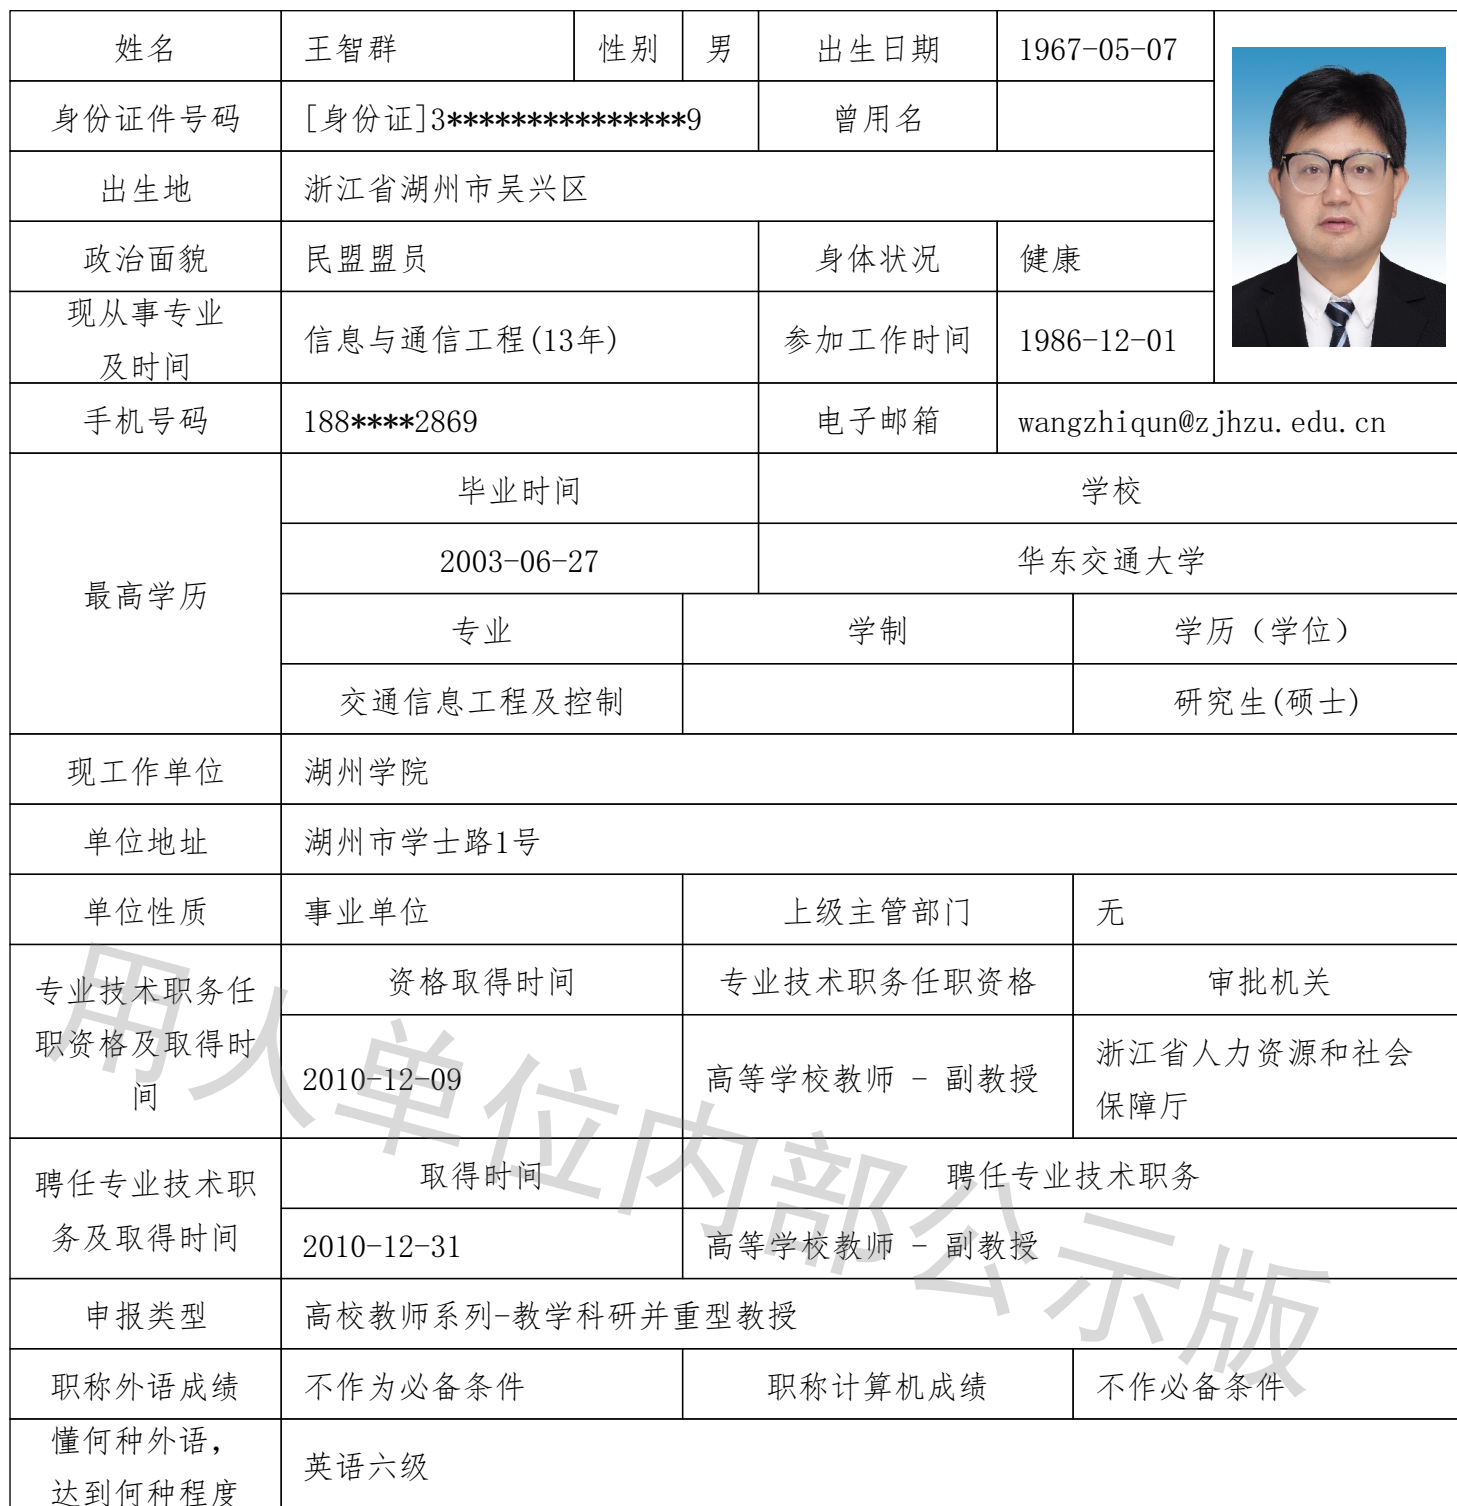 姓名 王智群 性别 男 出生日期 1967-05-07
身份证件号码 [身份证]3***************9 曾用名
出生地 浙江省湖州市吴兴区
政治面貌 民盟盟员 身体状况 健康
现从事专业
及时间
信息与通信工程(13年) 参加工作时间 1986-12-01
手机号码 188****2869 电子邮箱 wangzhiqun@zjhzu.edu.cn
最高学历
毕业时间 学校
2003-06-27 华东交通大学
专业 学制 学历（学位）
交通信息工程及控制 研究生(硕士)
现工作单位 湖州学院
单位地址 湖州市学士路1号
单位性质 事业单位 上级主管部门 无
专业技术职务任
职资格及取得时
间
资格取得时间 专业技术职务任职资格 审批机关
2010-12-09 高等学校教师 - 副教授
浙江省人力资源和社会
保障厅
聘任专业技术职
务及取得时间
取得时间 聘任专业技术职务
2010-12-31 高等学校教师 - 副教授
申报类型 高校教师系列-教学科研并重型教授
职称外语成绩 不作为必备条件 职称计算机成绩 不作必备条件
懂何种外语，
达到何种程度
英语六级
用人单位内部公示版